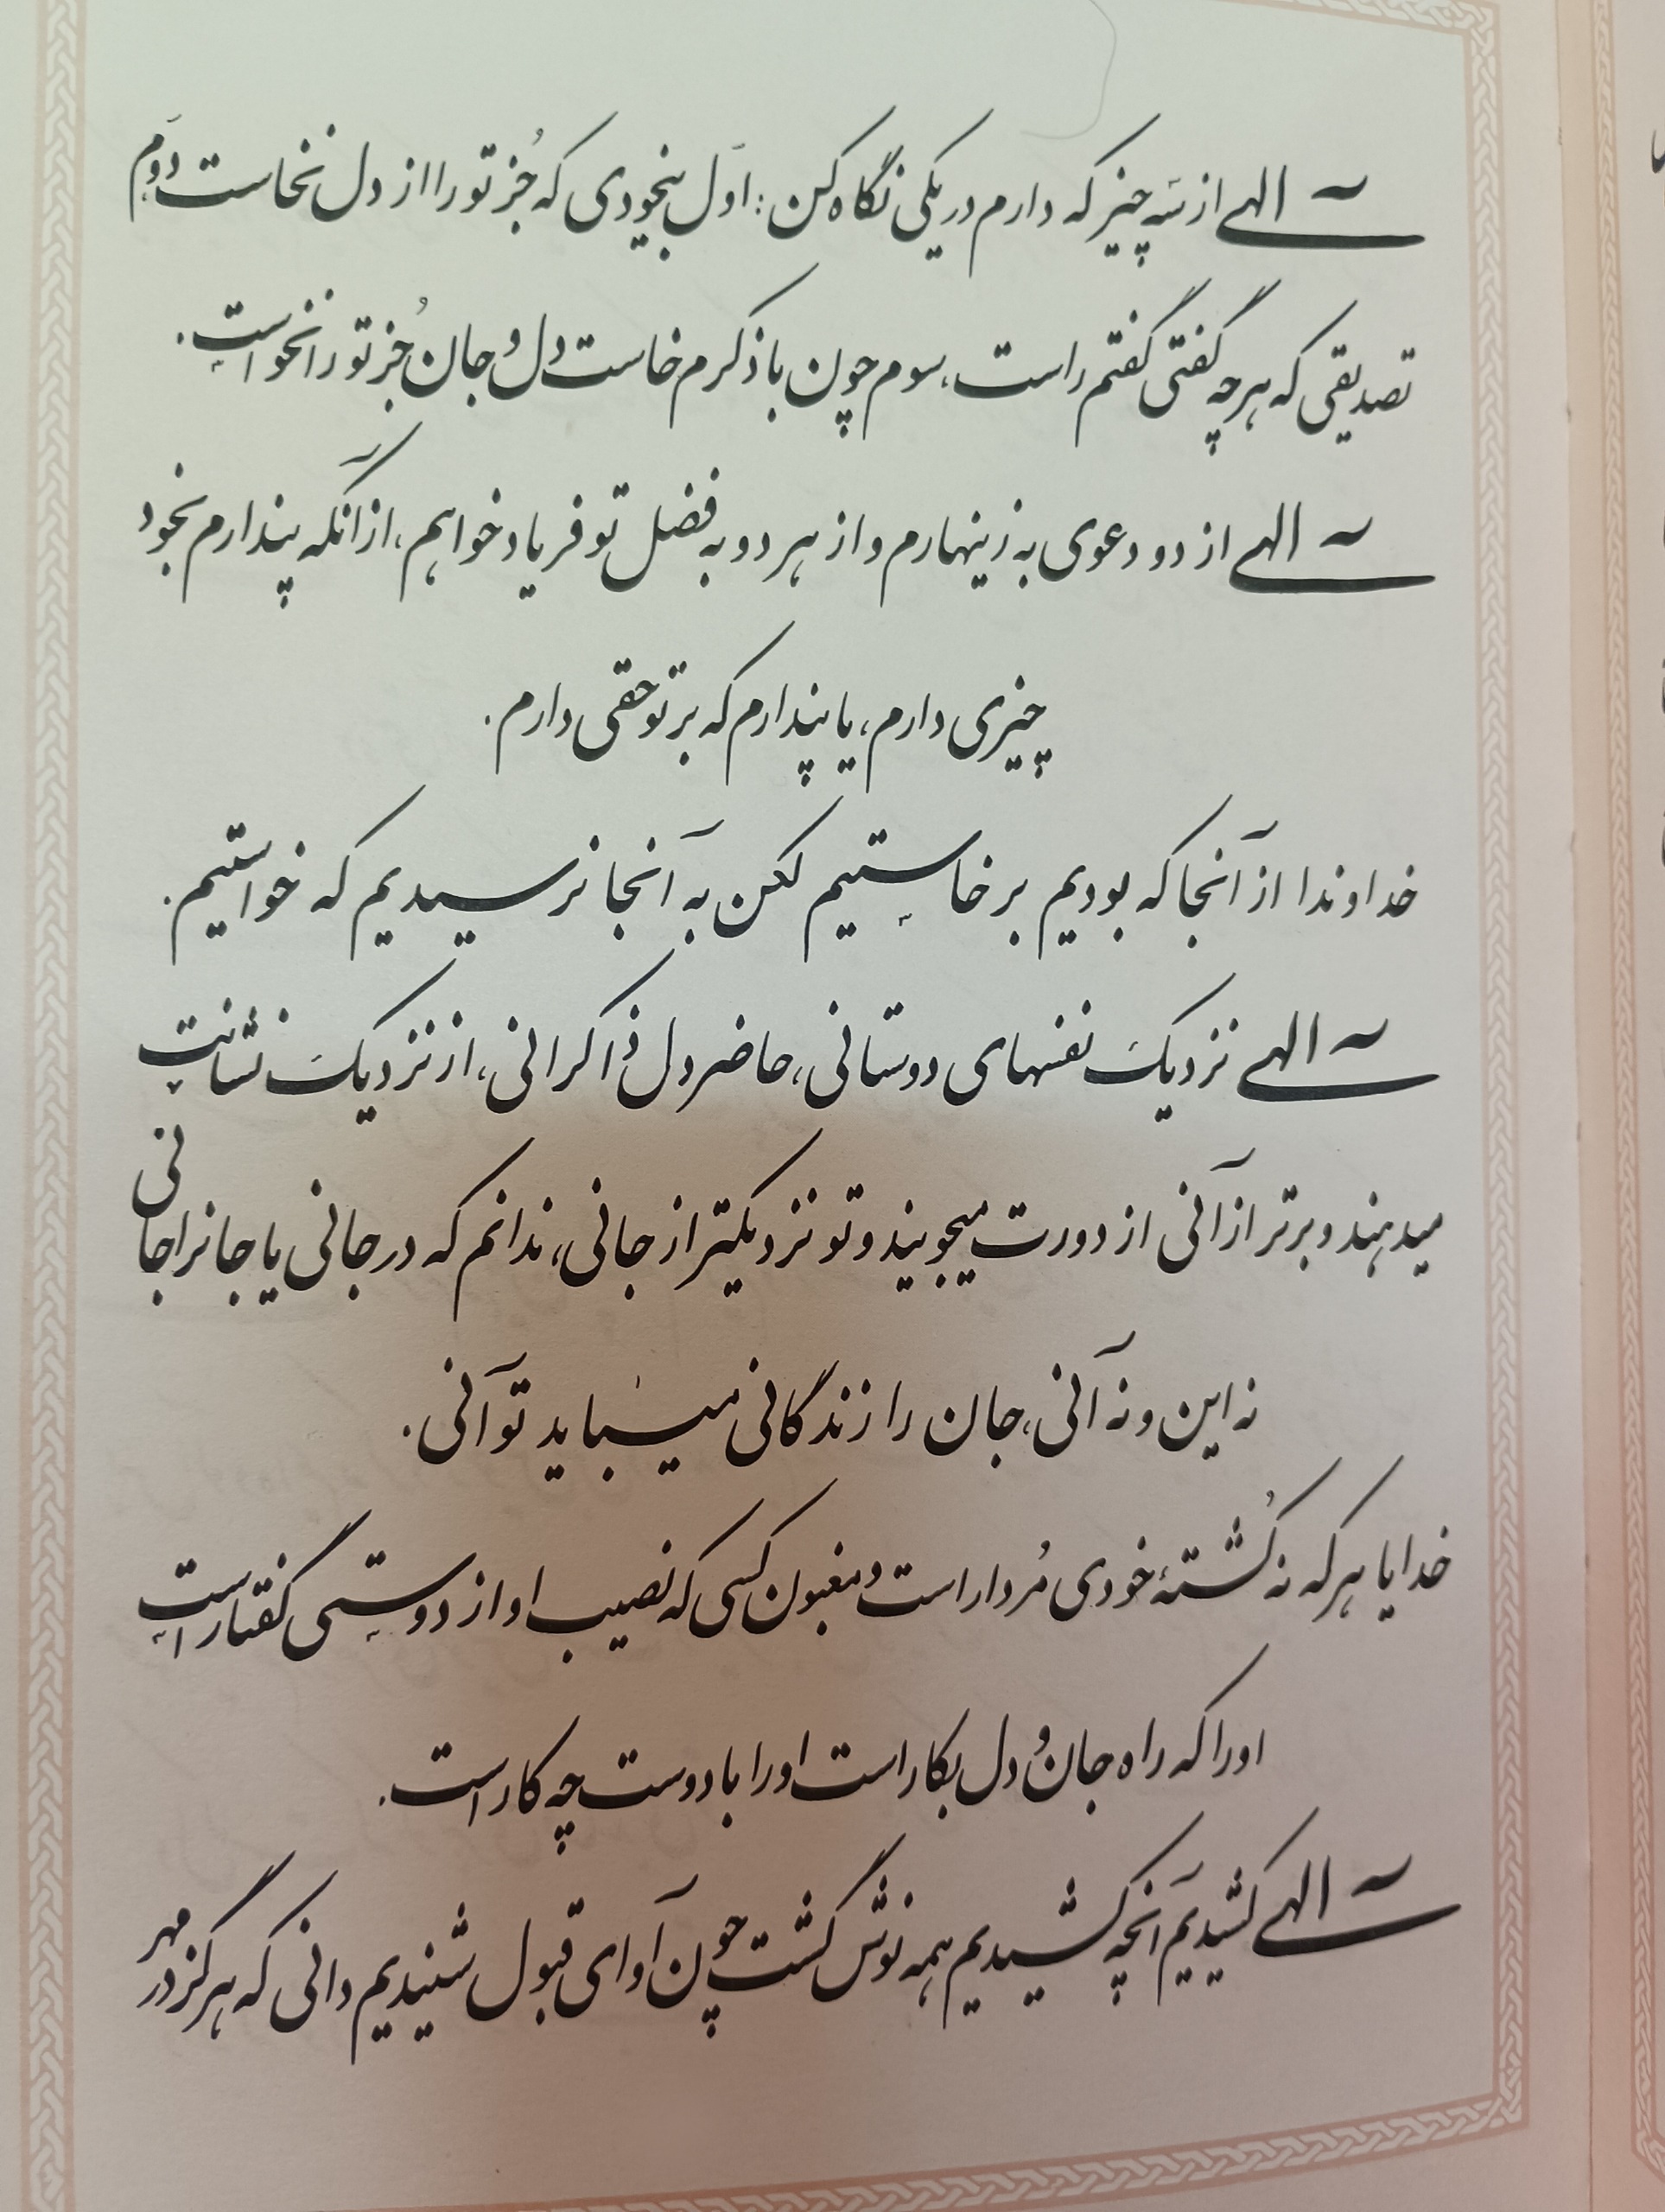 الهی از سه چیز که دارم در یکی نگاه کن: اوّل بیخودی که جُز تو را از دل نخاست دوّم
تصدیقی که هرچه گفتی گفتم راست، سوم چون باد کرم خاست دل و جان جُز تو را نخواست.
الهی از دو دعوی به زینهارم و از هر دو به فضل تو فریاد خواهم، از آنکه پندارم بخود
چیزی دارم، یا پندارم که بر تو حقی دارم.
خداوندا از آنجا که بودیم برخاستیم لکن به آنجا نرسیدیم که خواستیم.
الهی نزدیک نفسهای دوستانی، حاضر دل ذاکرانی، از نزدیک نشانت
میدهند و برتر از آنی از دورت میجویند و تو نزدیکتر از جانی، ندانم که در جانی یا جانرا جانی
نه این و نه آنی، جان را زندگانی میباید تو آنی.
خدایا هرکه نه کُشتهٔ خودی مُردار است و مغبون کسی که نصیب او از دوستی گفتار است
او را که راه جان و دل بکار است او را با دوست چه کار است.
الهی کشیدیم آنچه کشیدیم همه نوش گشت چون آوای قبول شنیدیم دانی که هرگز در مهر